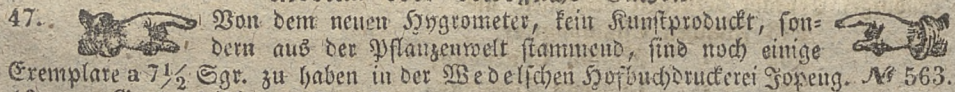 47. Von dem neuen Hygrometer, kein Kunstproduckt, son=
dern aus der Pflanzenwelt stammend, sind noch einige
Exemplare a 7½ Sgr. zu haben in der Wedelschen Hofbuchdruckerei Jopeng. № 563.